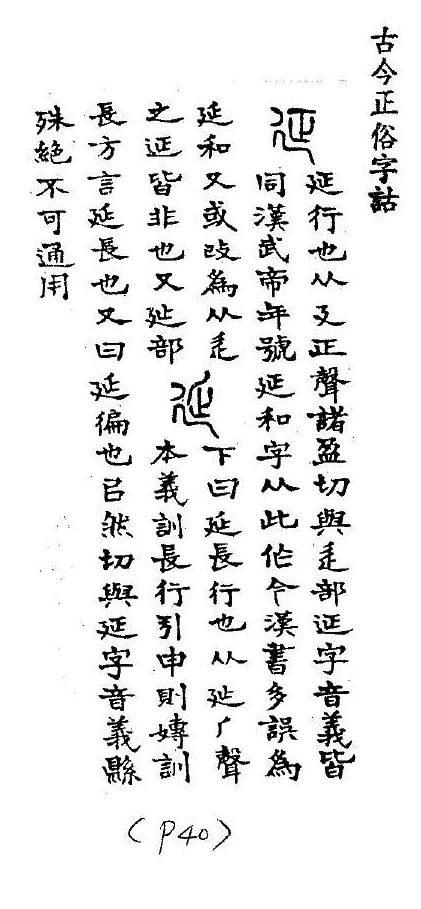 古今正俗字詁
𢌛
𢌛行也从廴正聲諸盈切與辵部延字音義皆
同漢武帝年號𢌛和字从此作今漢書多誤為
延和又或改為从辵
之𨒌皆非也又㢟部
延
下曰延長行也从㢟丿聲
本義訓長行引申則嫥訓
長方言延長也又曰延徧也㠯然切與𢌛字音義縣
殊絕不可通用
(P40)